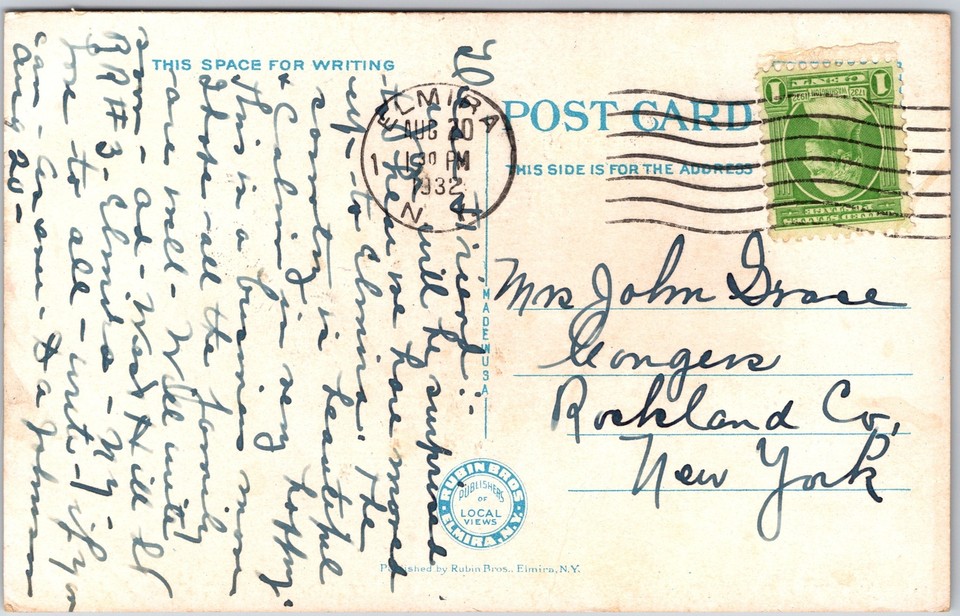 THIS SPACE FOR WRITING
POST CARD
THIS SIDE IS FOR THE ADDRESS
ELMIRA
AUG 20
1130 PM
1932
N.Y.
1 CENT 1
1732 WASHINGTON 1932
MADE IN U S A
Mrs John Grace
Congers
Rockland Co,
New York
Dear Friend:-
You will be surprised
when we have moved
up - to Elmira. The
country is beautiful
& Calvin is very happy.
This is a business
I hope all the family
are well - Will write
soon - ad - West Hill
RR #3 - Elmira - N.Y
love to all - write - if you
can - As ever - H a Johnson
Aug 20 -
RUBIN BROS
PUBLISHERS
OF
LOCAL
VIEWS
ELMIRA, N.Y.
Published by Rubin Bros., Elmira, N.Y.